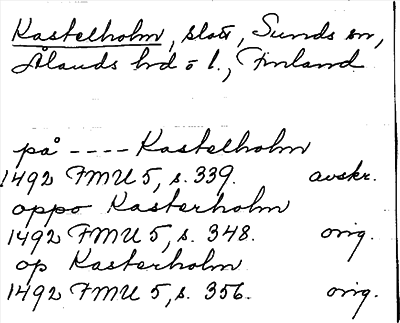 Kastelholm, slott, Sunds sn,
Ålands hd o l., Finland
på ---- Kastelholm
1492 FMU 5, s. 339. avskr.
oppo Kasterholm
1492 FMU 5, s. 348. orig.
op Kasterholm
1492 FMU 5, s. 356. orig.